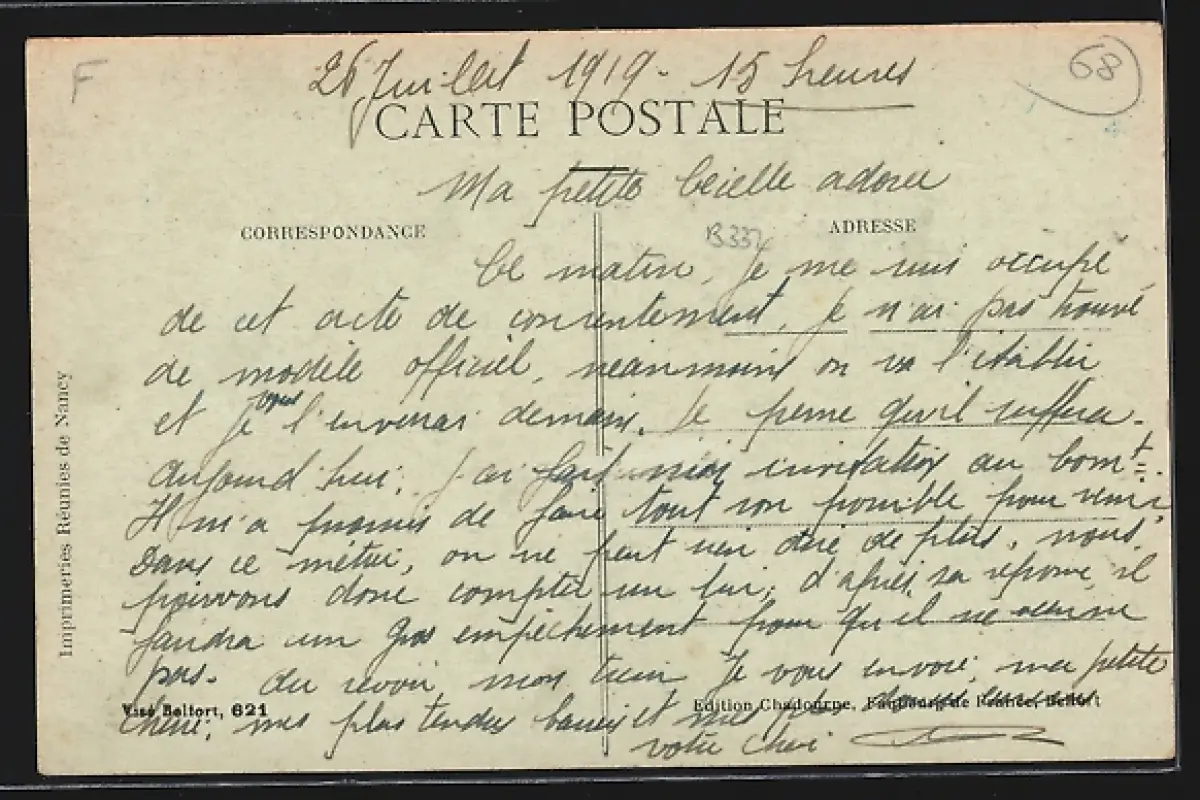 F
26 Juillet 1919 - 15 heures
68
CARTE POSTALE
Ma petite adorée
CORRESPONDANCE
B337
ADRESSE
Ce matin, je me suis occupé
de cet acte de consentement, je n'ai pas trouvé
de modèle officiel, néanmoins on va l'établir
et je vous l'enverrai demain. Je pense qu'il suffira.
Aujourd'hui, j'ai fait mon invitation au Comt.
Il m'a promis de faire tout son possible pour venir
Dans ce métier, on ne peut rien dire de plus, nous
pouvons donc compter sur lui, d'après sa réponse, il
faudra un gros empêchement pour qu'il ne vienne
pas. Au revoir, mon tien Je vous envoie, ma petite
chérie, mes plus tendres baisers et mes plus douces caresses
votre Chéri
Imprimeries Réunies de Nancy
Visé Belfort, 621
Edition Chadourne, Faubourg de France, Belfort